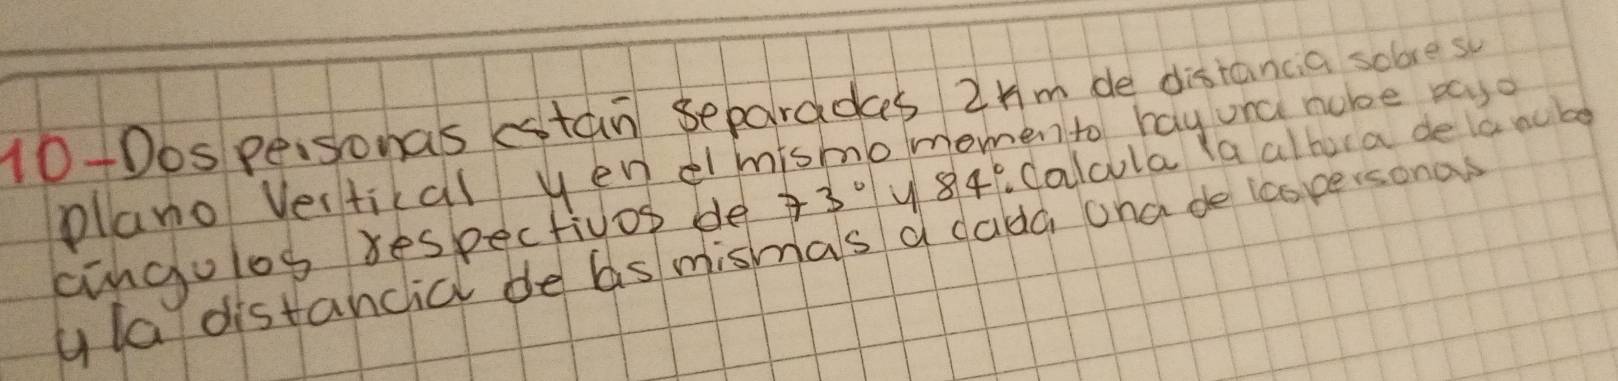 10-Dos personas están separadas 2km de distancia sobre su
plano Vertical y en el mismo momento hay una nube bajo
ángulos respectivos de 73° y 84°. Calcula la altura de la nube
y la distancia de las mismas a cada una de las personas